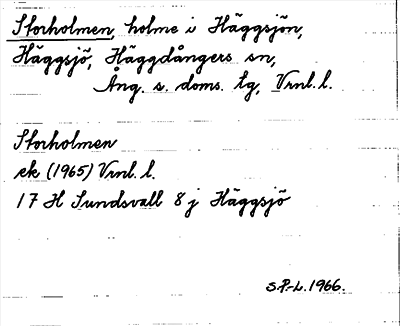 Storholmen, holme i Häggsjön,
Häggsjö, Häggdångers sn,
Ång. s. doms. tg, Vrnl. l.
Storholmen
ek (1965) Vrnl. l.
17 H Sundsvall 8 j Häggsjö
S.P.-L. 1966.